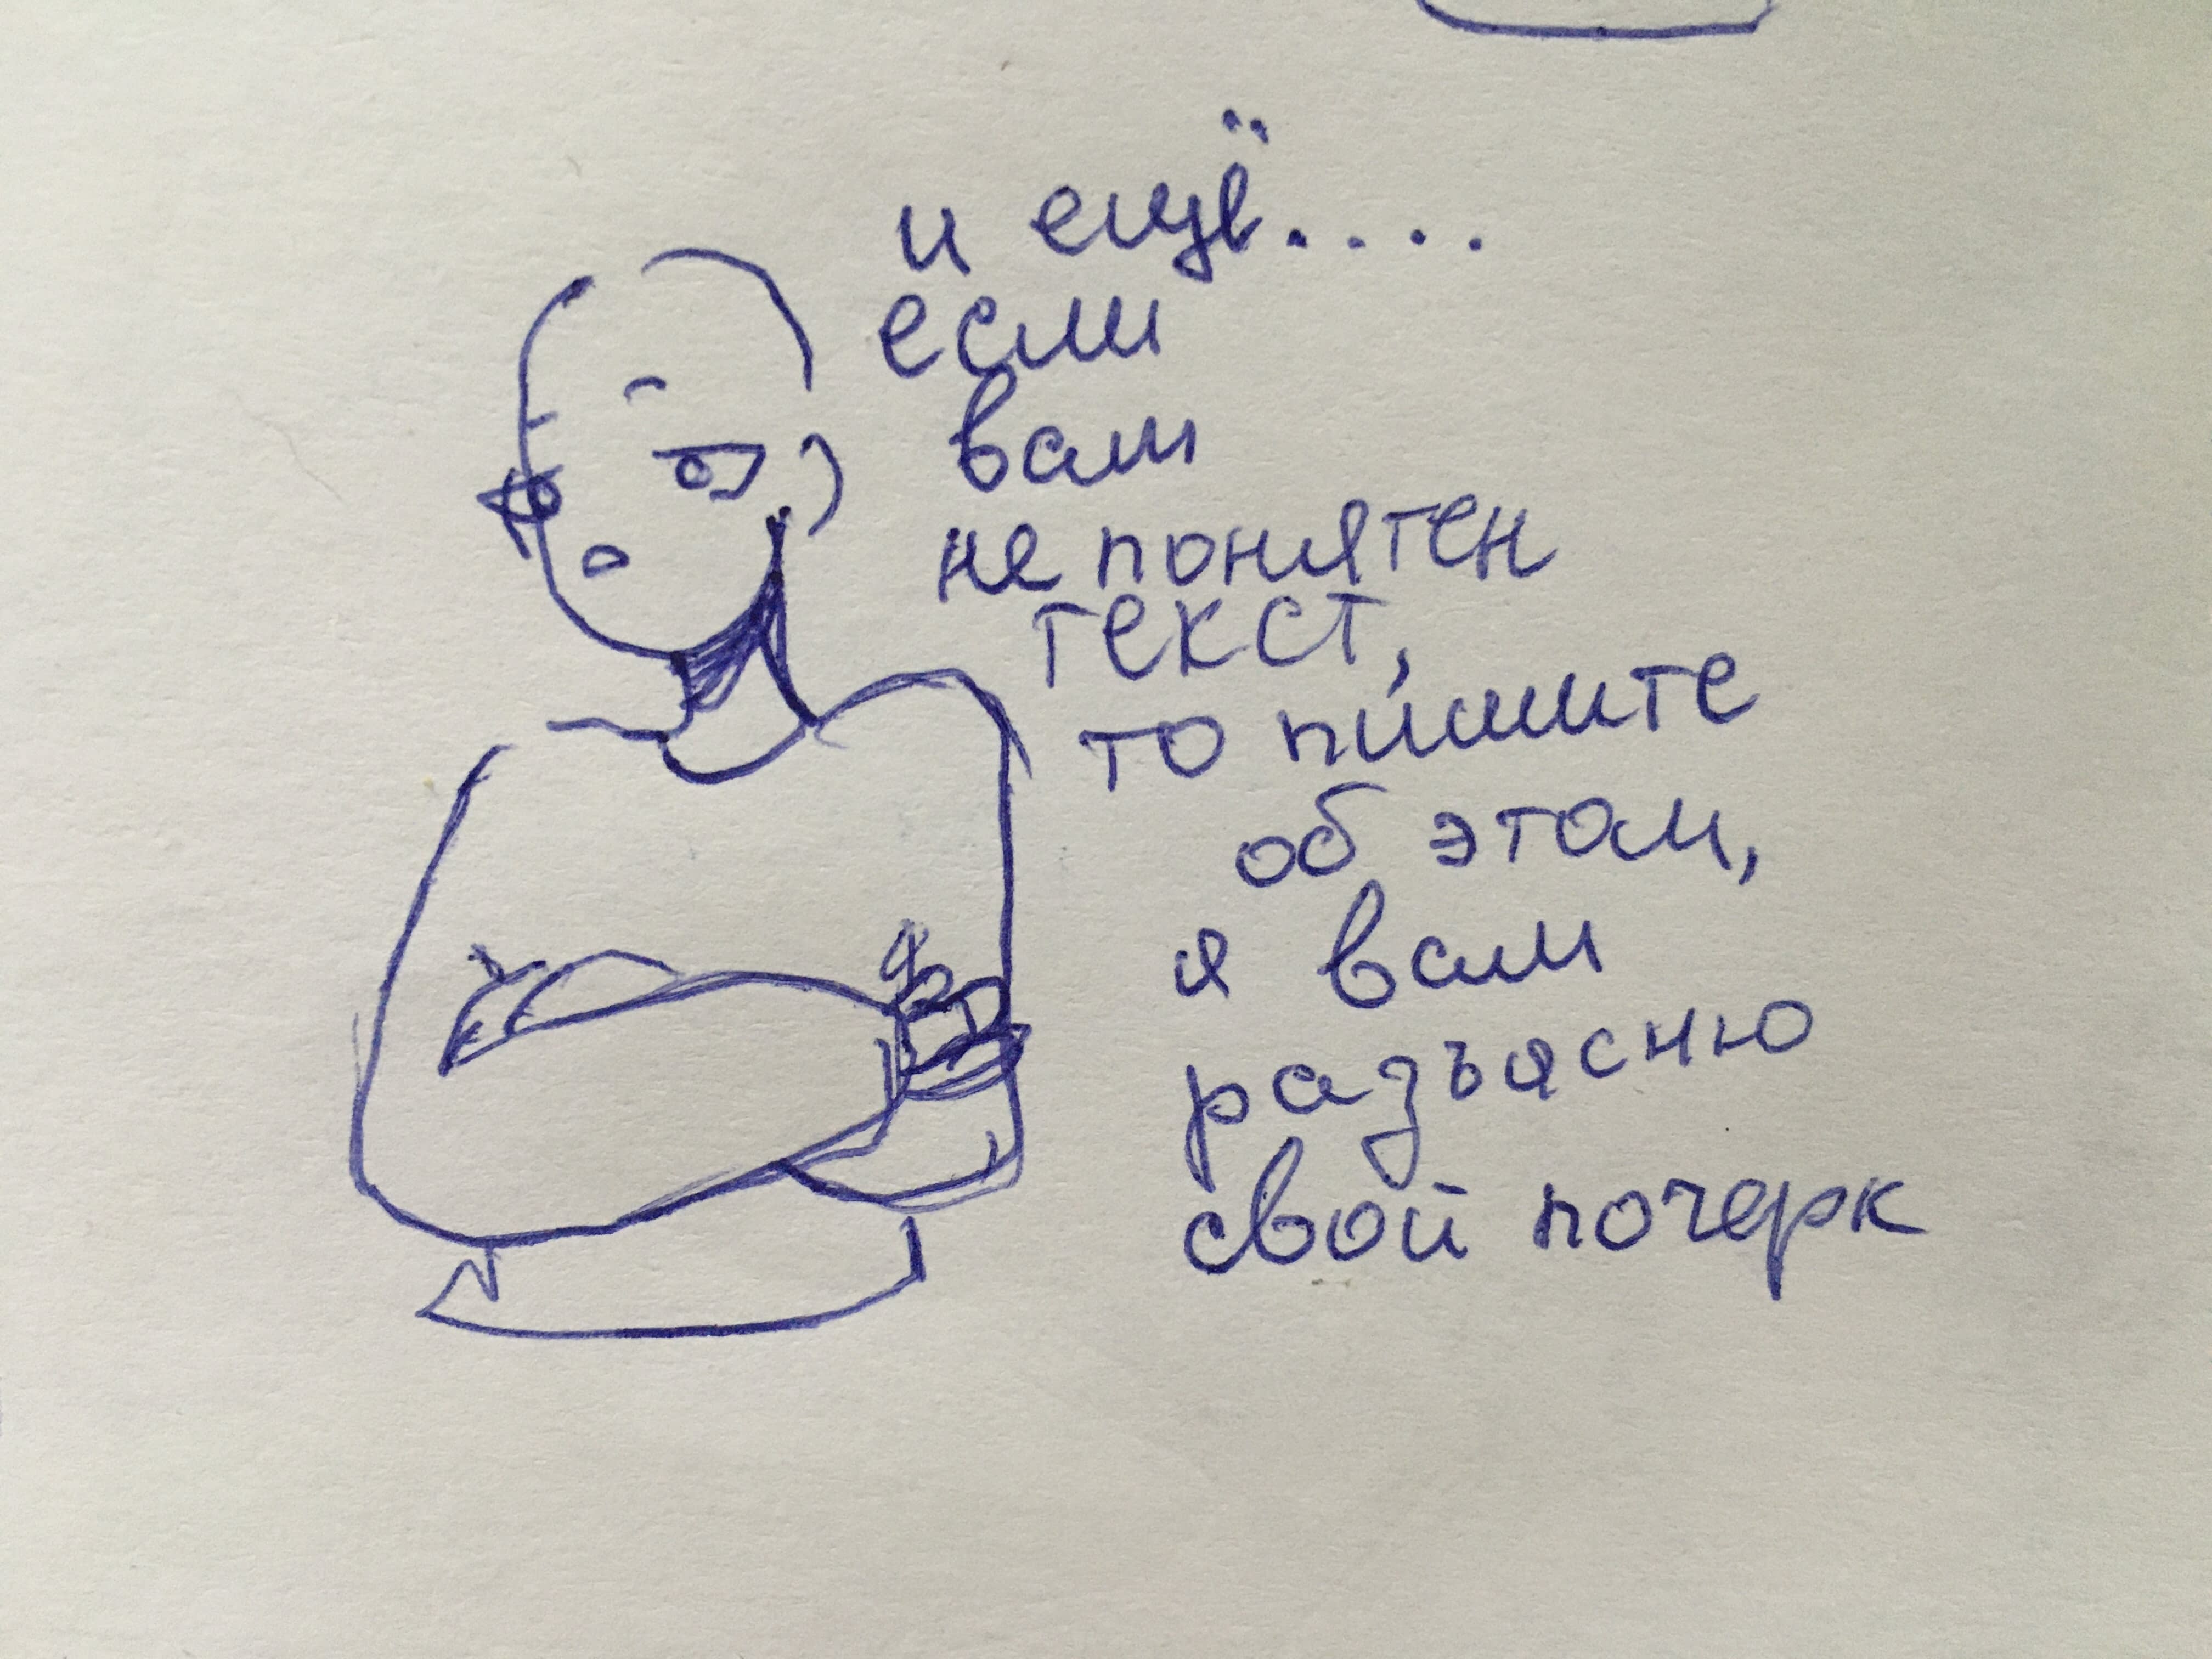 и ещё....
если
вам
не понятен
текст,
то пишите
об этом,
я вам
разъясню
свой почерк